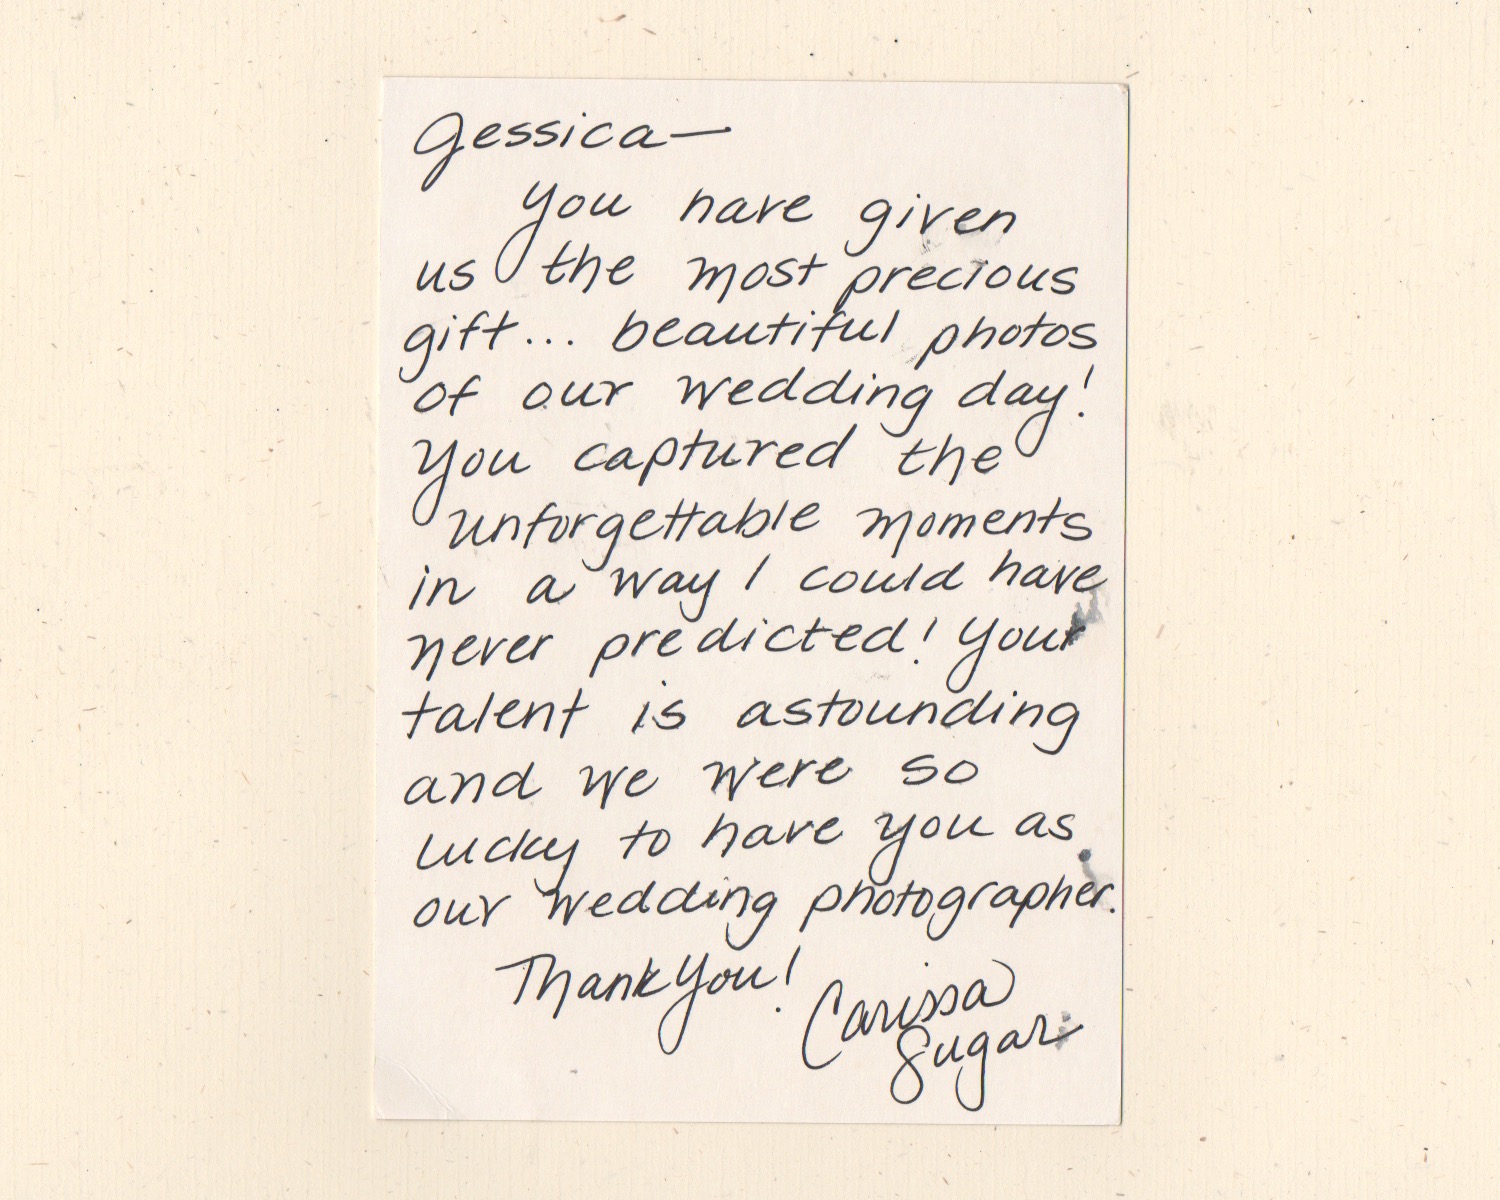 Jessica—
You have given
us the most precious
gift... beautiful photos
of our wedding day!
You captured the
unforgettable moments
in a way I could have
never predicted! Your
talent is astounding
and we were so
lucky to have you as
our wedding photographer.
Thank You!
Carissa
Sugar